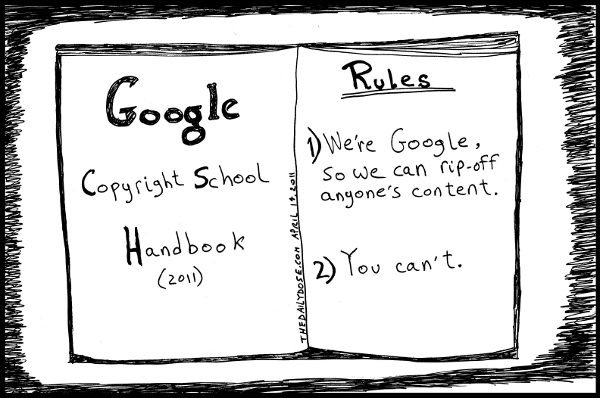 Google
Copyright School
Handbook
(2011)
THEDAILYDOSE.COM APRIL 19, 2011
Rules
1) We're Google,
so we can rip-off
anyone's content.
2) You can't.